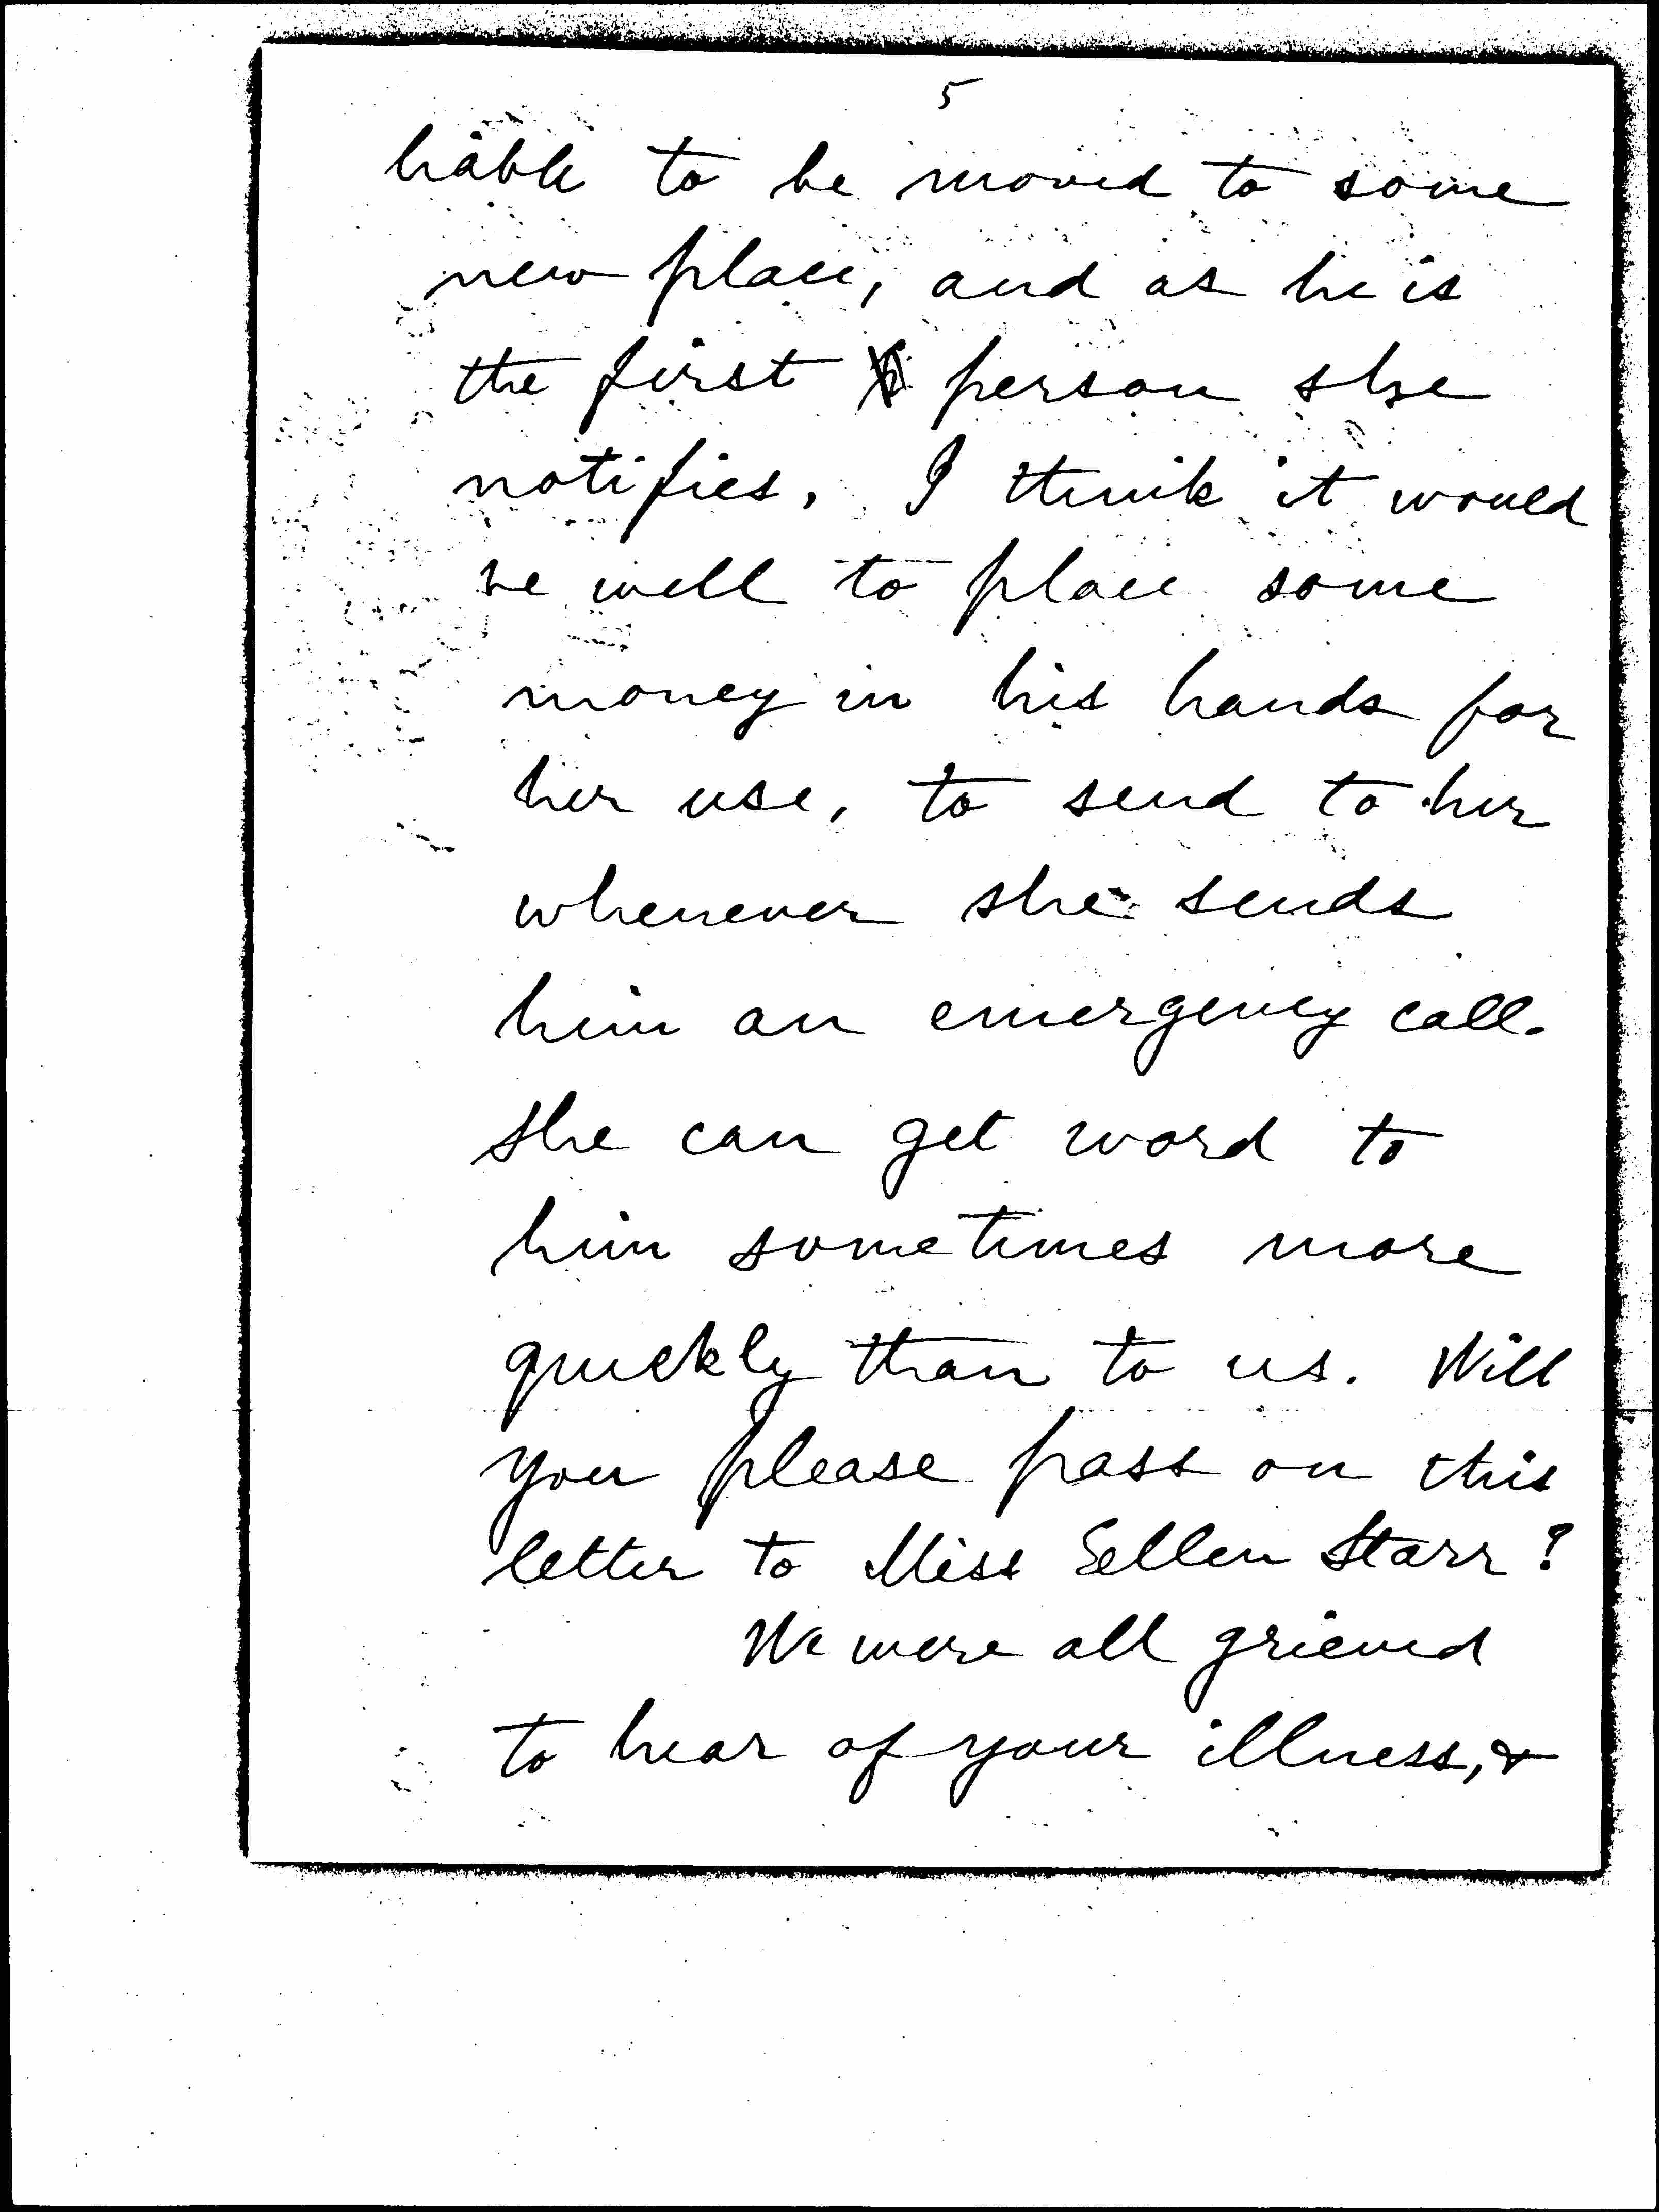 5
liable to be moved to some
new place, and as he is
the first person she
notifies, I think it would
be well to place some
money in his hands for
her use, to send to her
whenever she sends
him an emergency call.
She can get word to
him sometimes more
quickly than to us. Will
you please pass on this
letter to Miss Ellen Starr?
We were all grieved
to hear of your illness, &